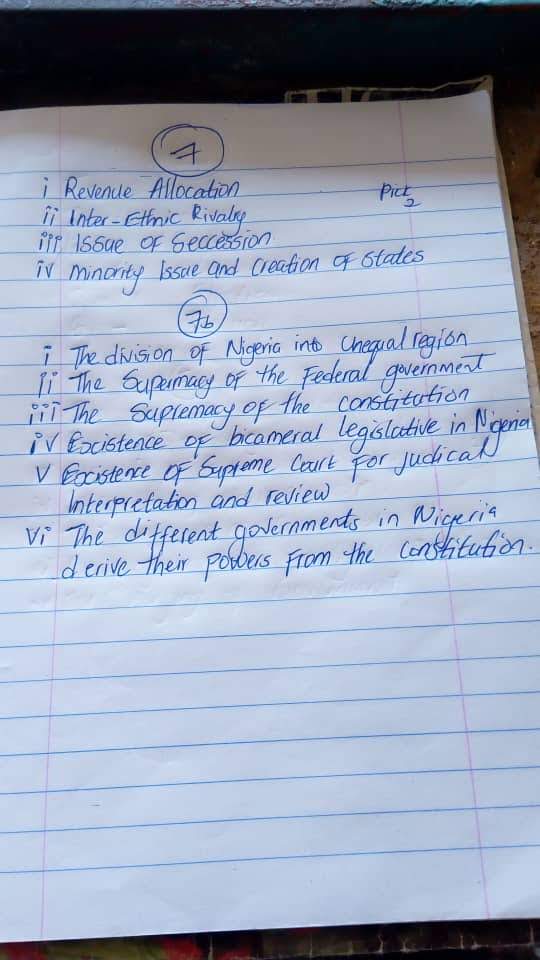 7
i Revenue Allocation
Pick 2
ii Inter-Ethnic Rivalry
iii Issue of Seccession
iv Minority Issue and Creation of States
7b
i The division of Nigeria into Unequal region
ii The Supermacy of the Federal government
iii The Supremacy of the constitution
iv Existence of bicameral legislative in Nigeria
v Existence of Supreme Court for Judical
Interpretation and review
vi The different governments in Nigeria
derive their powers from the constitution.